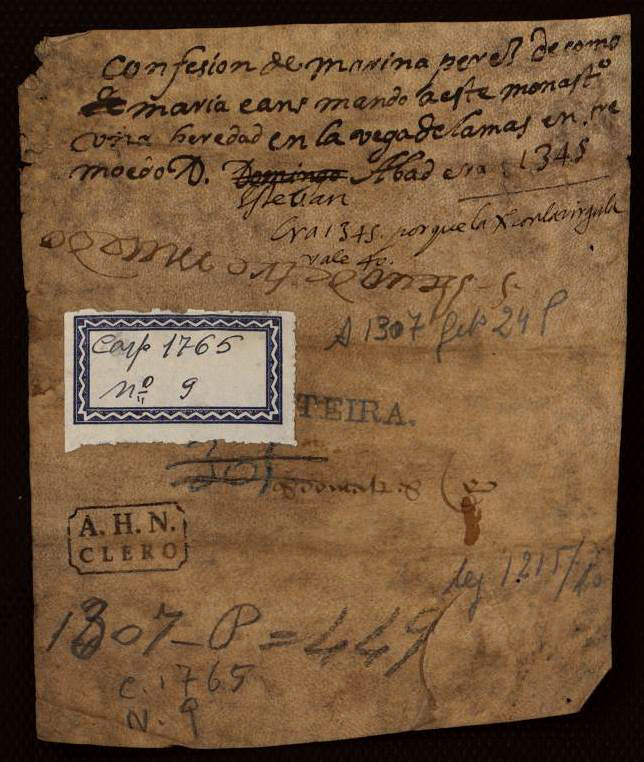 Confesion de marina perez de como
de maria eans mando a este monastº
vna heredad en la vega de lamas en tre
moedo D. Domingo Abad era 1345
Estevan
Era 1345. porque la X con la virgula
vale 40.
S. Steuo de tre muedo
A 1307 Feb 24 P
Carp 1765
nº 9
TEIRA.
A. H. N.
CLERO
leg 1215/
1307 - P = 449
C. 1765
N. 9